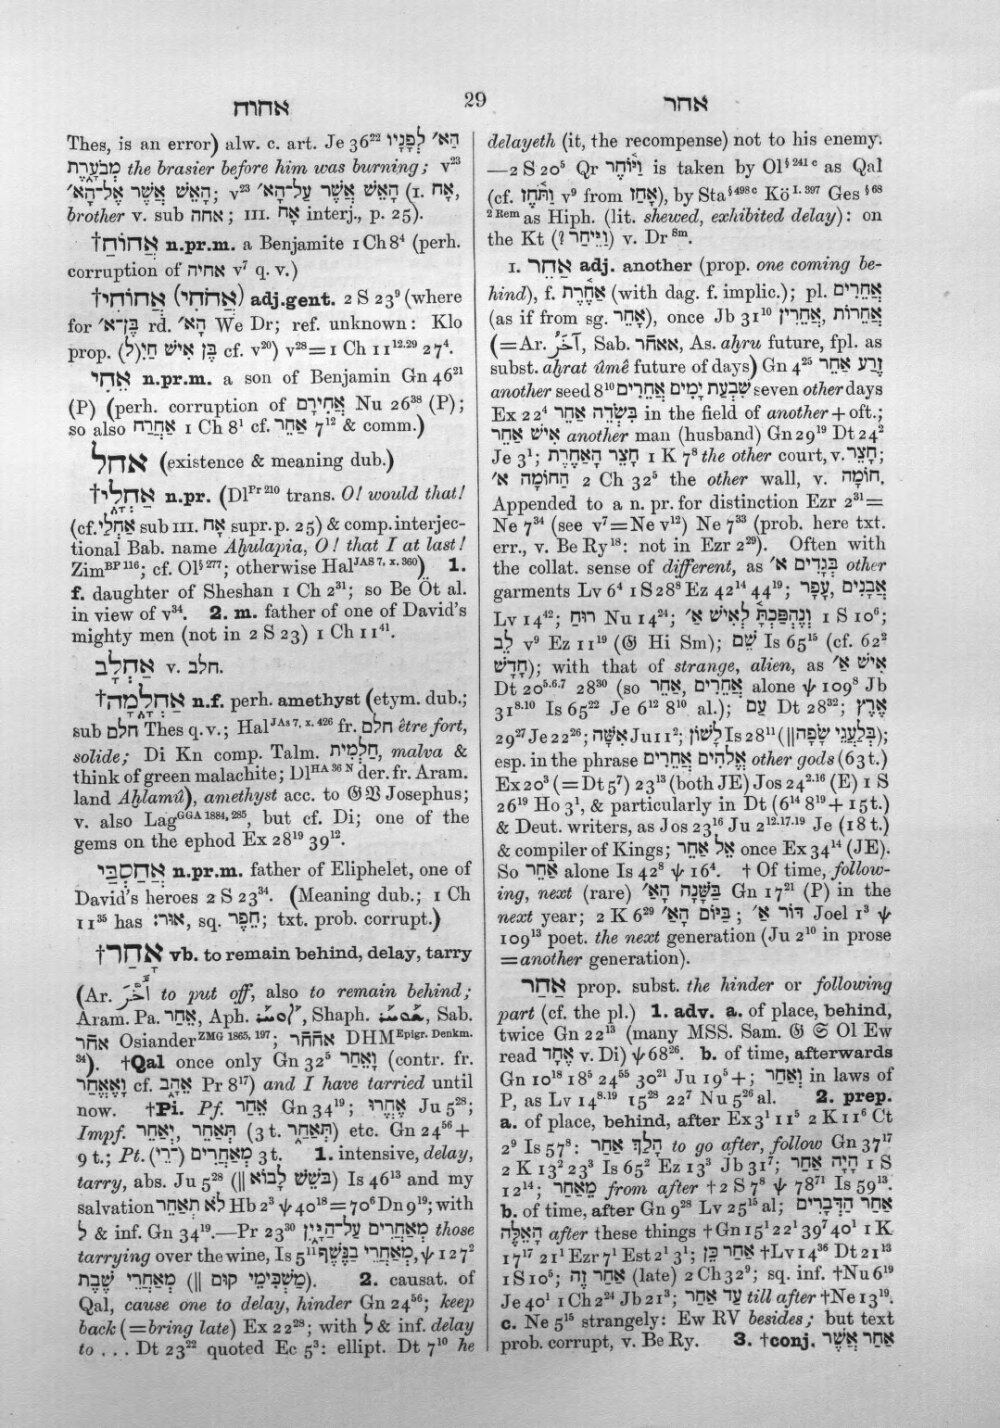 אחוח
29
אחר
Thes, is an error) alw. c. art. Je 36²² הא׳ לְפָנָיו
מְבֹעָרֶת the brasier before him was burning; v²³
הָאֵשׁ אֲשֶׁר אֶל־הָא׳; v²³ הָאֵשׁ אֲשֶׁר עַל־הָא׳ (I. אָח,
brother v. sub אחה; III. אָח interj., p. 25).
†אֲחוֹחַ n.pr.m. a Benjamite 1 Ch 8⁴ (perh.
corruption of אחיה v⁷ q. v.)
†אֲחוֹחִי (אֲחֹחִי) adj.gent. 2 S 23⁹ (where
for בֶּן־א׳ rd. הָא׳ We Dr; ref. unknown: Klo
prop. בֶּן אִישׁ חַיִ(ל) cf. v²⁰) v²⁸=1 Ch 11¹²·²⁹ 27⁴.
אֵחִי n.pr.m. a son of Benjamin Gn 46²¹
(P) (perh. corruption of אֲחִירָם Nu 26³⁸ (P);
so also אַחְרַח 1 Ch 8¹ cf. אַחֵר 7¹² & comm.)
אחל (existence & meaning dub.)
†אַחְלָי n.pr. (Dl^Pr 210 trans. O! would that!
(cf. אַחְלַי sub III. אָח supr. p. 25) & comp. interjec-
tional Bab. name Aḫulapia, O! that I at last!
Zim^BP 116; cf. Ol^§ 277; otherwise Hal^JAS 7, x. 360) 1.
f. daughter of Sheshan 1 Ch 2³¹; so Be Öt al.
in view of v³⁴. 2. m. father of one of David's
mighty men (not in 2 S 23) 1 Ch 11⁴¹.
אַחְלָב v. חלב.
†אַחְלָמָה n.f. perh. amethyst (etym. dub.;
sub חלם Thes q. v.; Hal^JAs 7, x. 426 fr. חלם être fort,
solide; Di Kn comp. Talm. חַלָּמִית, malva &
think of green malachite; Dl^HA 36 N der. fr. Aram.
land Aḫlamû), amethyst acc. to 𝔊 𝔙 Josephus;
v. also Lag^GGA 1884, 285, but cf. Di; one of the
gems on the ephod Ex 28¹⁹ 39¹².
אֲחַסְבַּי n.pr.m. father of Eliphelet, one of
David's heroes 2 S 23³⁴. (Meaning dub.; 1 Ch
11³⁵ has אוּר:, sq. חֵפֶר; txt. prob. corrupt.)
†אָחַר vb. to remain behind, delay, tarry
(Ar. أَخَّرَ to put off, also to remain behind;
Aram. Pa. אַחַר, Aph. , Shaph. , Sab.
אחֿר Osiander^ZMG 1865, 197; DHM^Epigr. Denkm.
³⁴). †Qal once only Gn 32⁵ וָאֵחַר (contr. fr.
וָאֶאֱחַר cf. אֵהַב Pr 8¹⁷) and I have tarried until
now. †Pi. Pf. אֵחַר Gn 34¹⁹; אֶחֱרוּ Ju 5²⁸;
Impf. יְאַחֵר, תְּאַחֵר (3 t. תְּאַחַר) etc. Gn 24⁵⁶+
9 t.; Pt. מְאַחֲרִים (־רֵי) 3 t. 1. intensive, delay,
tarry, abs. Ju 5²⁸ (|| בֹּשֵׁשׁ לָבוֹא) Is 46¹³ and my
salvation לֹא תְאַחֵר Hb 2³ ψ 40¹⁸=70⁶ Dn 9¹⁹; with
לְ & inf. Gn 34¹⁹.—Pr 23³⁰ מְאַחֲרִים עַל־הַיָּיִן those
tarrying over the wine, Is 5¹¹ מְאַחֲרֵי בַנֶּשֶׁף, ψ 127²
מְאַחֲרֵי שֶׁבֶת (|| מַשְׁכִּימֵי קוּם). 2. causat. of
Qal, cause one to delay, hinder Gn 24⁵⁶; keep
back (=bring late) Ex 22²⁸; with לְ & inf. delay
to . . . Dt 23²² quoted Ec 5³: ellipt. Dt 7¹⁰ he
delayeth (it, the recompense) not to his enemy.
—2 S 20⁵ Qr וַיּוֹחֶר is taken by Ol^§ 241 c as Qal
(cf. וַתֹּחֶז v⁹ from אָחַז), by Sta^§ 498 c Kö^I. 397 Ges^§ 68
² Rem as Hiph. (lit. shewed, exhibited delay): on
the Kt (? וַיֵּיחַר) v. Dr^Sm.
I. אַחֵר adj. another (prop. one coming be-
hind), f. אַחֶרֶת (with dag. f. implic.); pl. אֲחֵרִים
(as if from sg. אָחֵר), once Jb 31¹⁰ אֲחֵרִין, אֲחֵרוֹת
(=Ar. آخَرُ, Sab. אאחֿר, As. aḫru future, fpl. as
subst. aḫrat ûmê future of days) Gn 4²⁵ זֶרַע אַחֵר
another seed 8¹⁰ שִׁבְעַת יָמִים אֲחֵרִים seven other days
Ex 22⁴ בִּשְׂדֵה אַחֵר in the field of another + oft.;
אִישׁ אַחֵר another man (husband) Gn 29¹⁹ Dt 24²
Je 3¹; חָצֵר הָאַחֶרֶת 1 K 7⁸ the other court, v. חָצֵר;
הַחוֹמָה א׳ 2 Ch 32⁵ the other wall, v. חוֹמָה.
Appended to a n. pr. for distinction Ezr 2³¹=
Ne 7³⁴ (see v⁷=Ne v¹²) Ne 7³³ (prob. here txt.
err., v. Be Ry¹⁸: not in Ezr 2²⁹). Often with
the collat. sense of different, as בְּגָדִים א׳ other
garments Lv 6⁴ 1 S 28⁸ Ez 42¹⁴ 44¹⁹; אֲבָנִים, עָפָר
Lv 14⁴²; רוּחַ Nu 14²⁴; וְנֶהְפַּכְתָּ לְאִישׁ א׳ 1 S 10⁶;
לֵב v⁹ Ez 11¹⁹ (𝔊 Hi Sm); שֵׁם Is 65¹⁵ (cf. 62²
חָדָשׁ); with that of strange, alien, as אִישׁ א׳
Dt 20⁵·⁶·⁷ 28³⁰ (so אַחֵר, אֲחֵרִים alone ψ 109⁸ Jb
31⁸·¹⁰ Is 65²² Je 6¹² 8¹⁰ al.); עַם Dt 28³²; אֶרֶץ
29²⁷ Je 22²⁶; אִשָּׁה Ju 11²; לָשׁוֹן Is 28¹¹ (|| בְּלַעֲגֵי שָׂפָה);
esp. in the phrase אֱלֹהִים אֲחֵרִים other gods (63 t.)
Ex 20³ (=Dt 5⁷) 23¹³ (both JE) Jos 24²·¹⁶ (E) 1 S
26¹⁹ Ho 3¹, & particularly in Dt (6¹⁴ 8¹⁹ + 15 t.)
& Deut. writers, as Jos 23¹⁶ Ju 2¹²·¹⁷·¹⁹ Je (18 t.)
& compiler of Kings; אֵל אַחֵר once Ex 34¹⁴ (JE).
So אַחֵר alone Is 42⁸ ψ 16⁴. † Of time, follow-
ing, next (rare) בַּשָּׁנָה הָא׳ Gn 17²¹ (P) in the
next year; 2 K 6²⁹ בַּיּוֹם הָא׳; דּוֹר א׳ Joel 1³ ψ
109¹³ poet. the next generation (Ju 2¹⁰ in prose
=another generation).
אַחַר prop. subst. the hinder or following
part (cf. the pl.) 1. adv. a. of place, behind,
twice Gn 22¹³ (many MSS. Sam. 𝔊 𝔖 Ol Ew
read אֶחָד v. Di) ψ 68²⁶. b. of time, afterwards
Gn 10¹⁸ 18⁵ 24⁵⁵ 30²¹ Ju 19⁵ +; וְאַחַר in laws of
P, as Lv 14⁸·¹⁹ 15²⁸ 22⁷ Nu 5²⁶ al. 2. prep.
a. of place, behind, after Ex 3¹ 11⁵ 2 K 11⁶ Ct
2⁹ Is 57⁸: הָלַךְ אַחַר to go after, follow Gn 37¹⁷
2 K 13² 23³ Is 65² Ez 13³ Jb 31⁷; הָיָה אַחַר 1 S
12¹⁴; מֵאַחַר from after † 2 S 7⁸ ψ 78⁷¹ Is 59¹³.
b. of time, after Gn 9²⁸ Lv 25¹⁵ al; אַחַר הַדְּבָרִים
הָאֵלֶּה after these things † Gn 15¹ 22¹ 39⁷ 40¹ 1 K
17¹⁷ 21¹ Ezr 7¹ Est 2¹ 3¹; אַחַר כֵּן † Lv 14³⁶ Dt 21¹³
1 S 10⁵; אַחַר זֶה (late) 2 Ch 32⁹; sq. inf. † Nu 6¹⁹
Je 40¹ 1 Ch 2²⁴ Jb 21³; עַד אַחַר till after † Ne 13¹⁹.
c. Ne 5¹⁵ strangely: Ew RV besides; but text
prob. corrupt, v. Be Ry. 3. †conj. אַחַר אֲשֶׁר